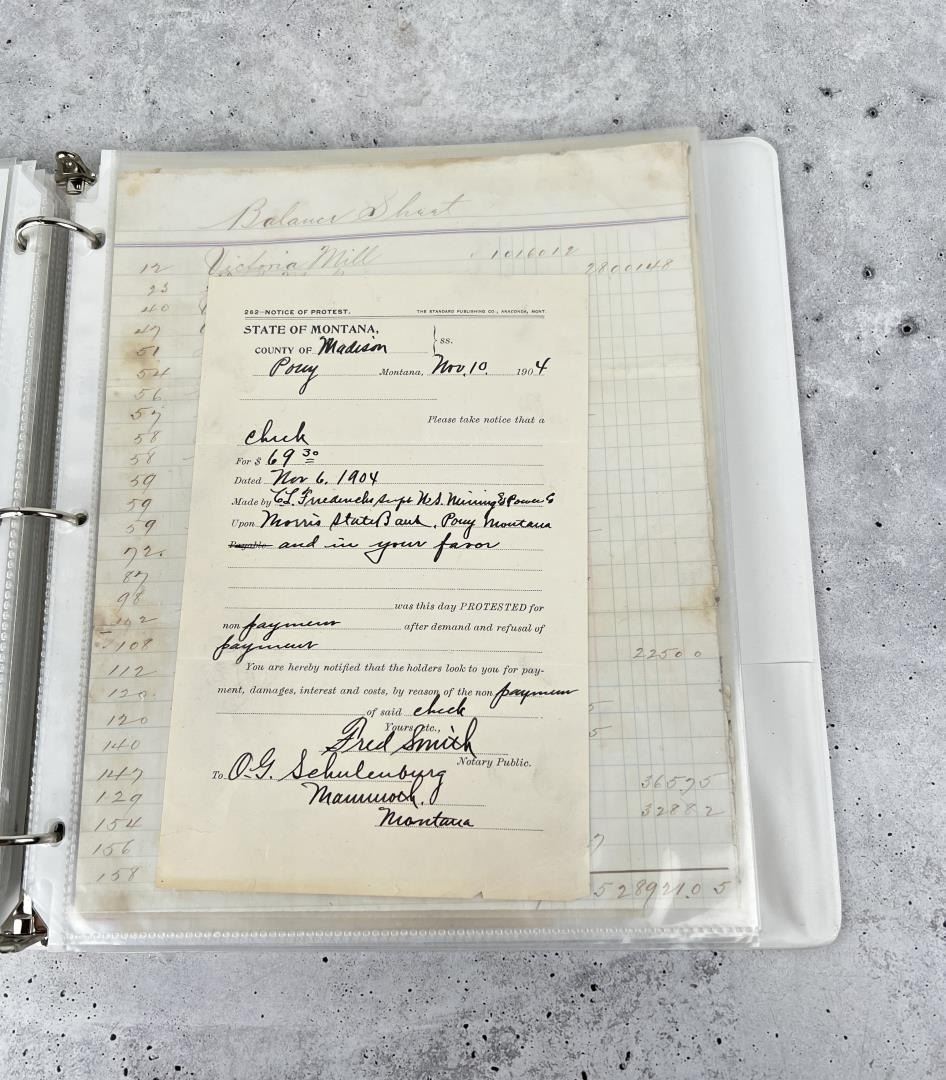 Balance Sheet
12 Victoria Mill 1016012
2800148
23
40
47
51
54
56
57
58
58
59
59
59
72
87
98
102
108
22500
112
120
120
140
147 36575
129 32882
154
156
158
5289210 5
262—NOTICE OF PROTEST. THE STANDARD PUBLISHING CO., ANACONDA, MONT.
STATE OF MONTANA,
COUNTY OF Madison } ss.
Pony Montana, Nov. 10. 1904
Please take notice that a
check
For $ 69 30
Dated Nov 6. 1904
Made by C.L. Fredericks Supt N.S. Mining & Power Co
Upon Morris State Bank, Pony Montana
Payable and in your favor
was this day PROTESTED for
non payment after demand and refusal of
payment
You are hereby notified that the holders look to you for pay-
ment, damages, interest and costs, by reason of the non payment
of said check
Yours etc.,
Fred Smith
Notary Public.
To O.G. Schulenburg
Mammoth.
Montana